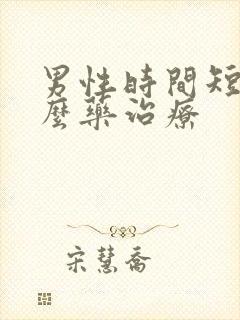 男性時間短
麼藥治療
宋慧喬